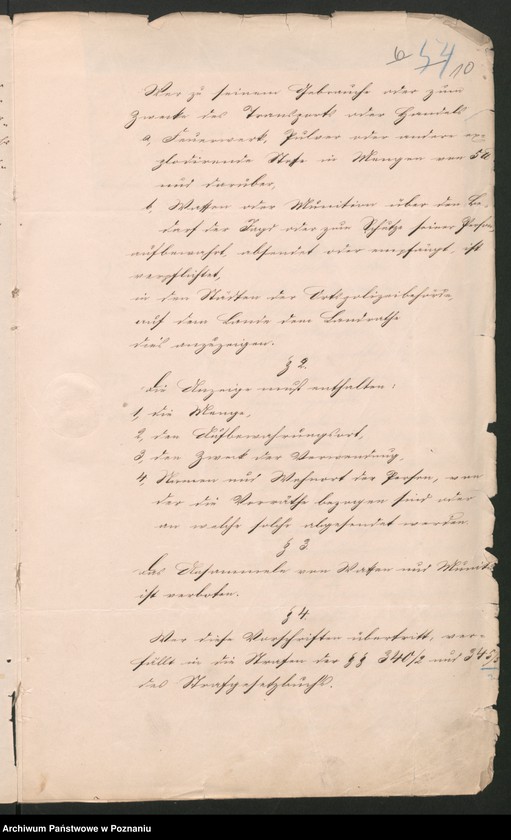 54
10
Wer zu seinem Gebrauche oder zum
Zwecke des Transports oder Handels
a, Feuerwerk, Pulver oder andere ex-
plodirende Stoffe in Mengen von 5 ℔
und darüber,
b, Waffen oder Munition über den Be-
darf der Jagd oder zum Schutze seiner Person
aufbewahrt, absendet oder empfängt, ist
verpflichtet,
in den Städten der Ortspolizeibehörde,
auf dem Lande dem Landrathe
dies anzuzeigen.
§ 2.
Die Anzeige muß enthalten:
1, die Menge,
2, den Aufbewahrungsort,
3, den Zweck der Verwendung,
4, Namen und Wohnort der Person, von
der die Vorräthe bezogen sind oder
an welche solche abgesendet werden.
§ 3.
Das Ansammeln von Waffen und Munit
ist verboten.
§ 4.
Wer diese Vorschriften übertritt, ver-
fällt in die Strafen der §§ 340/2 und 345/
des Strafgesetzbuchs.
Archiwum Państwowe w Poznaniu